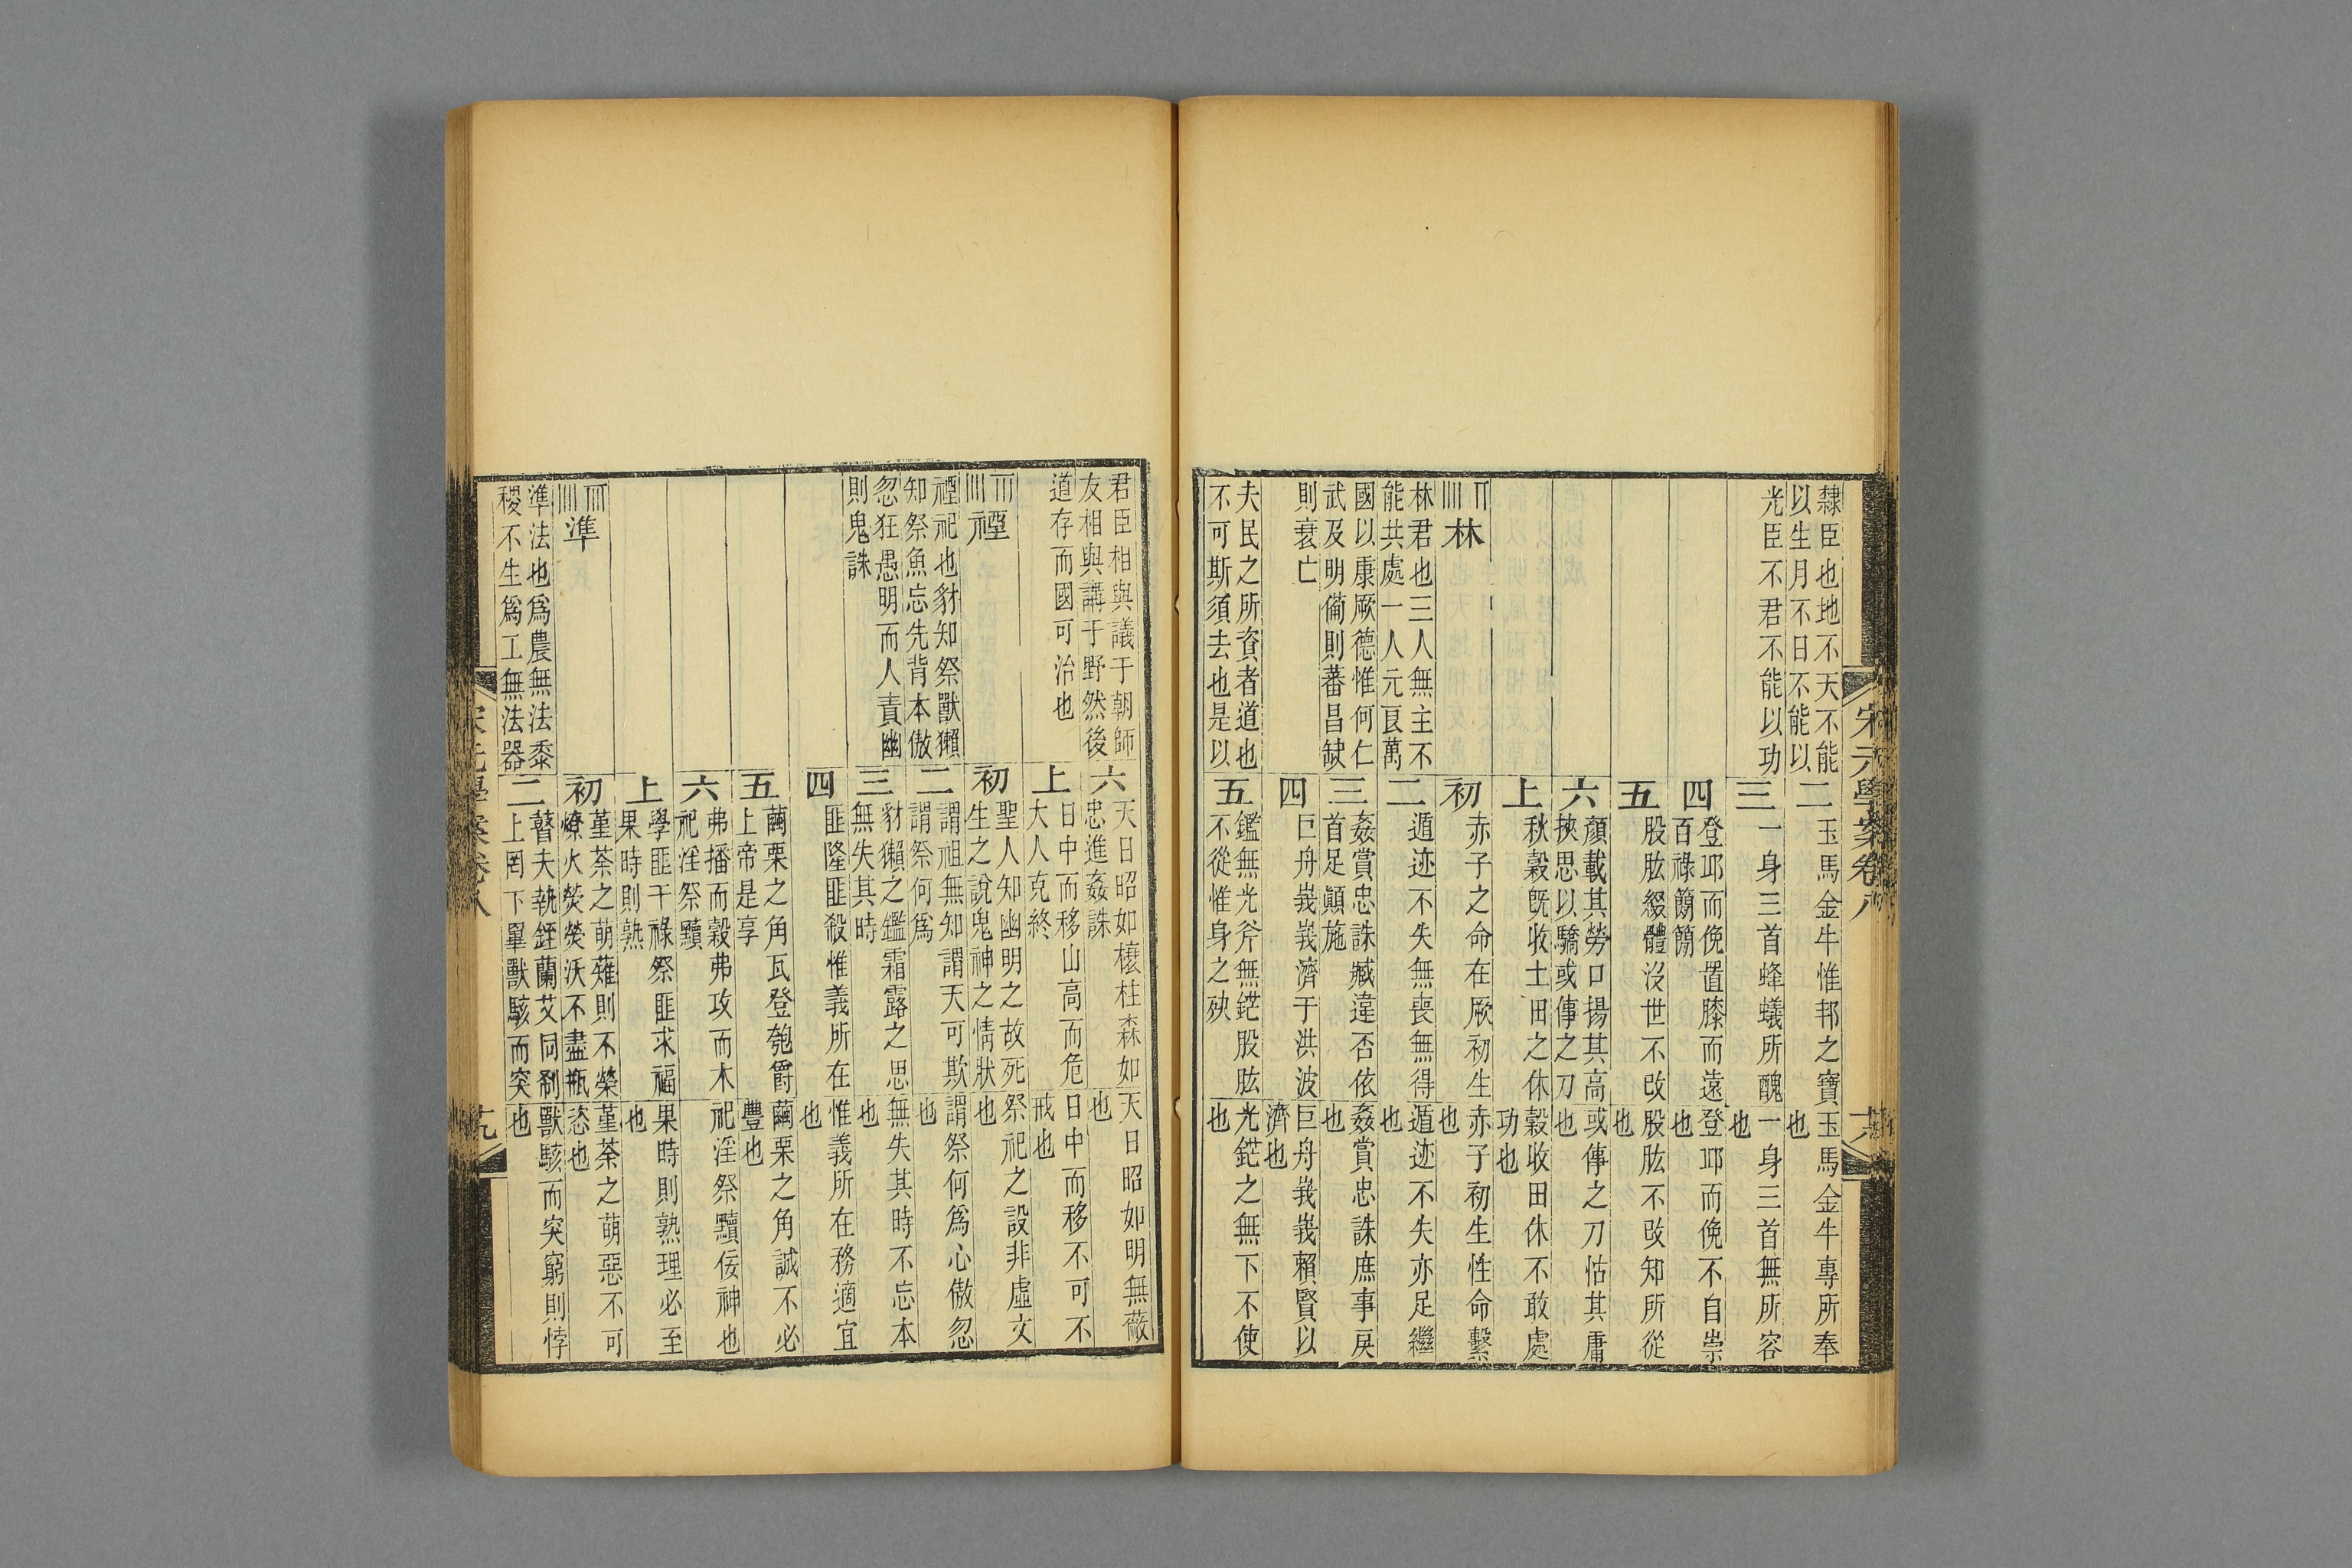 宋元學案卷八
隸臣也地不天不能
以生月不日不能以
光臣不君不能以功
二
玉馬金牛惟邦之寶
玉馬金牛專所奉
也
三
一身三首蜂蟻所醜
一身三首無所容
也
四
登邛而俛置膝而遠
百祿簡簡
登邛而俛不自崇
也
五
股肱綴體沒世不改
股肱不改知所從
也
六
顏載其勞口揚其高
挾思以驕或傳之刀
或傳之刀怙其庸
也
上
秋穀既收土田之休
穀收田休不敢處
功也
𝍪 林
林君也三人無主不
能共處一人元良萬
國以康厥德惟何仁
武及明備則蕃昌缺
則衰亡
初
赤子之命在厥初生
赤子初生性命繫
也
二
遁迹不失無喪無得
遁迹不失亦足繼
也
三
姦賞忠誅臧違否依
首足顚施
姦賞忠誅庶事戾
也
四
巨舟峩峩濟于洪波
巨舟峩峩賴賢以
濟也
夫民之所資者道也
不可斯須去也是以
五
鑑無光斧無鋩股肱
不從惟身之殃
光鋩之無下不使
也
君臣相與議于朝師
友相與講于野然後
道存而國可治也
六
天日昭如榱柱森如
忠進姦誅
天日昭如明無蔽
也
上
日中而移山高而危
大人克終
日中而移不可不
戒也
禋
禋祀也豺知祭獸獺
知祭魚忘先背本傲
忽狂愚明而人責幽
則鬼誅
初
聖人知幽明之故死
生之說鬼神之情狀
祭祀之設非虛文
也
二
謂祖無知謂天可欺
謂祭何爲
謂祭何爲心傲忽
也
三
豺獺之鑑霜露之思
無失其時
無失其時不忘本
也
四
匪隆匪殺惟義所在
惟義所在務適宜
也
五
繭栗之角瓦登匏爵
上帝是享
繭栗之角誠不必
豐也
六
弗播而穀弗攻而木
祀淫祭黷
祀淫祭黷佞神也
上
學匪干祿祭匪求福
果時則熟
果時則熟理必至
也
準
準法也爲農無法黍
稷不生爲工無法器
初
堇荼之萌薙則不榮
燎火熒熒沃不盡瓶
堇荼之萌惡不可
恣也
二
瞽夫執銍蘭艾同剎
上罔下畢獸駭而突
獸駭而突窮則悖
也
宋元學案卷八